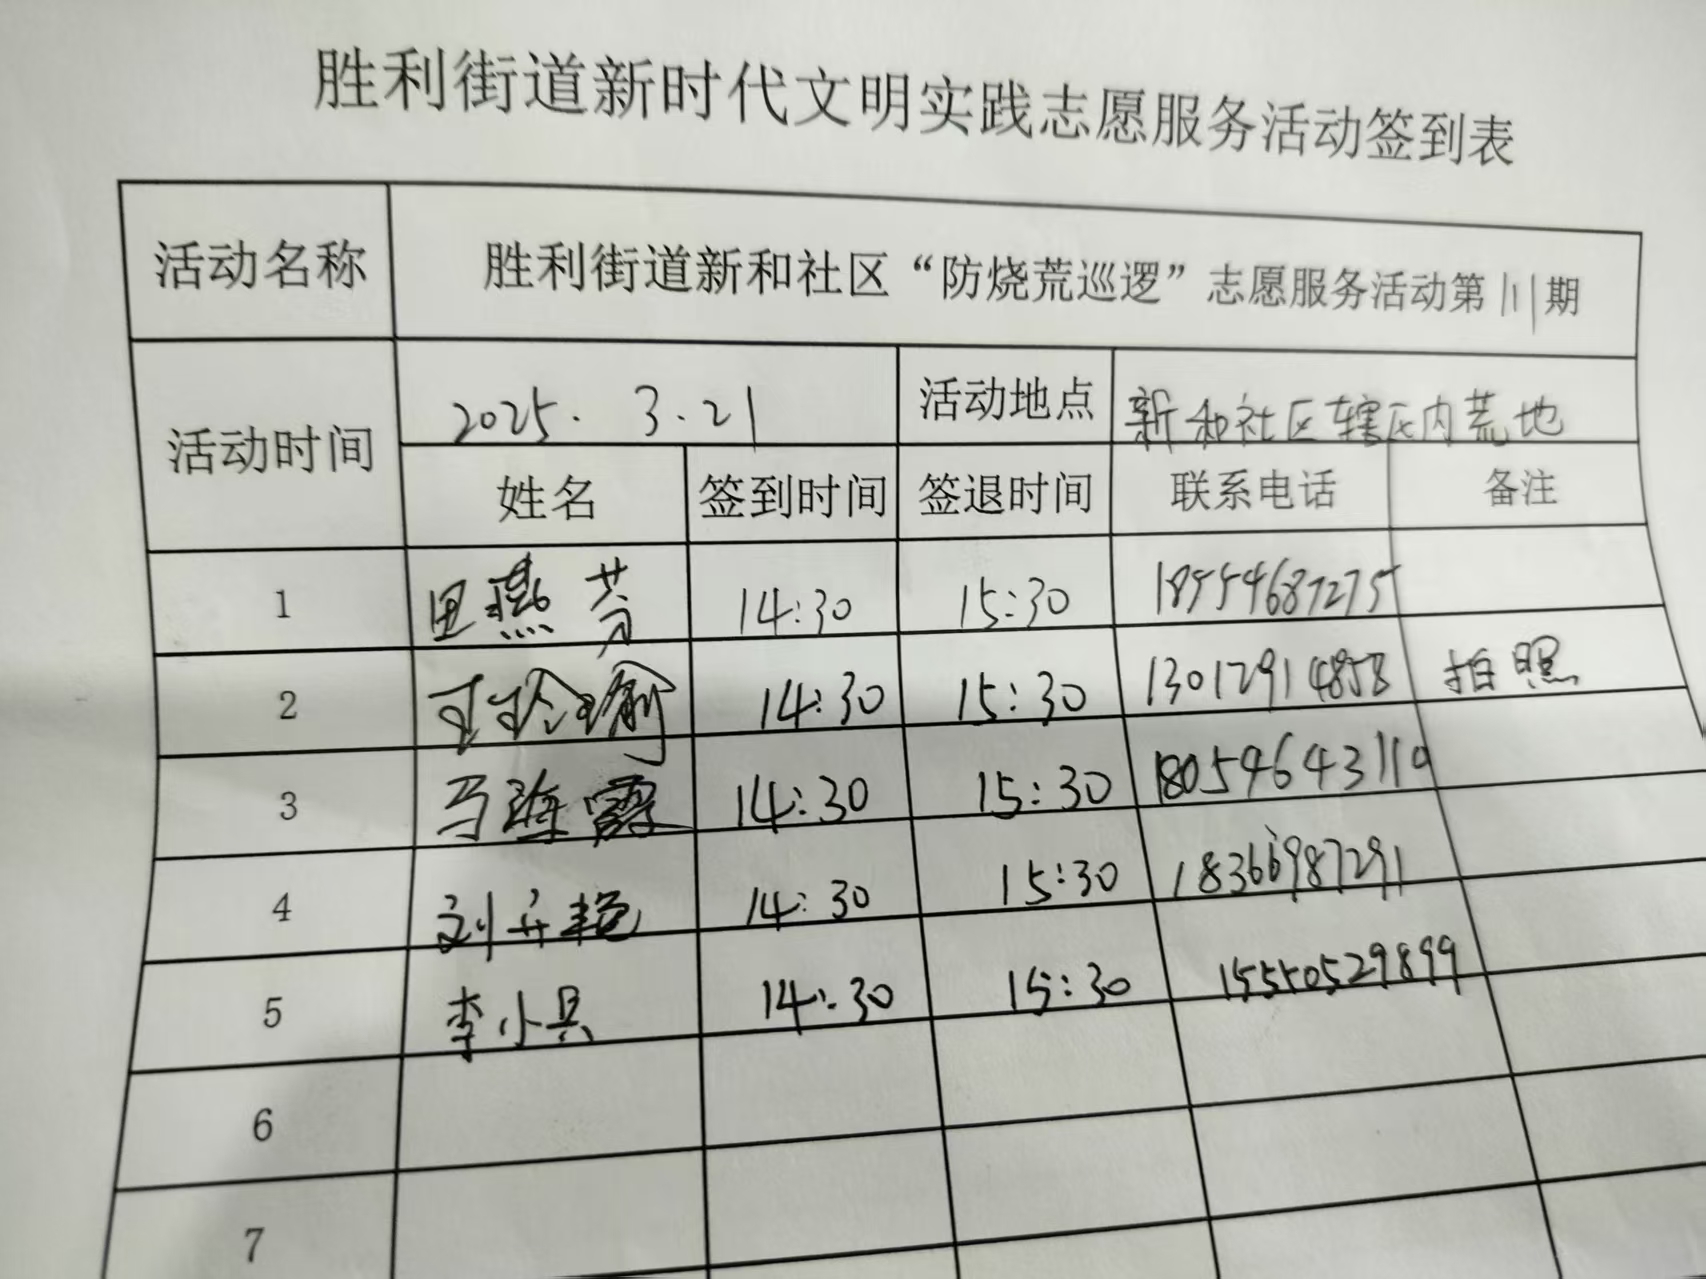 胜利街道新时代文明实践志愿服务活动签到表
活动名称 胜利街道新和社区“防烧荒巡逻”志愿服务活动第111期
活动时间 2025.3.21 活动地点 新和社区辖区内荒地
姓名 签到时间 签退时间 联系电话 备注
1 田燕芳 14:30 15:30 18554687275
2 14:30 15:30 13012914858 拍照
3 马海霞 14:30 15:30 18054643110
4 刘丹艳 14:30 15:30 18366987291
5 李小具 14:30 15:30 15550529899
6
7